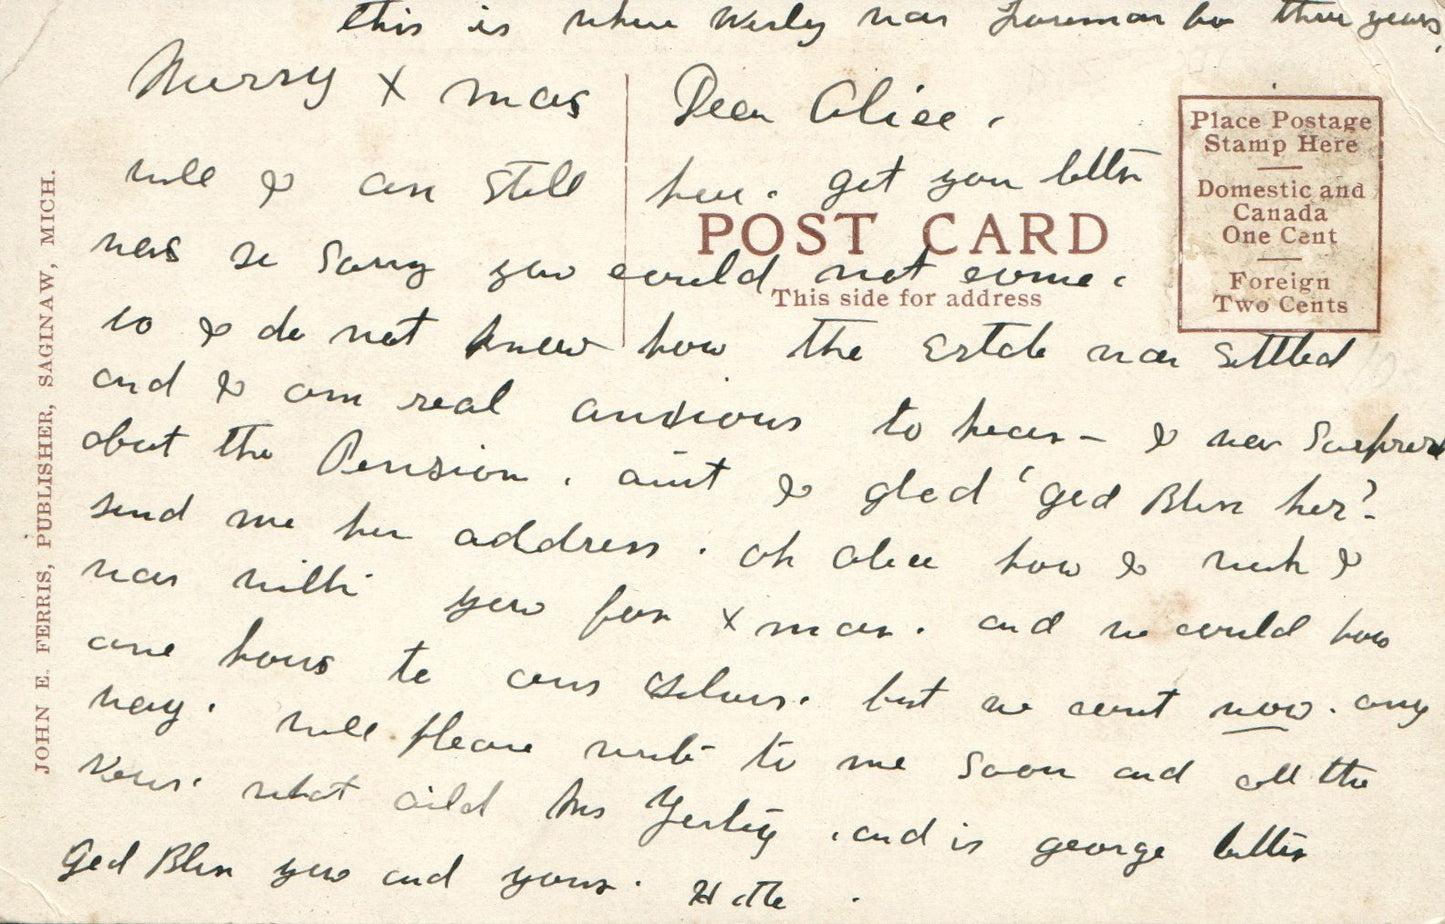 this is where Wesley was Foreman for three years,
Merry X mas
Dear Alice.
well I am still here. get your letter
was so sorry you could not come.
POST CARD
This side for address
Place Postage
Stamp Here
Domestic and
Canada
One Cent
Foreign
Two Cents
so I do not know how the Estate was settled
and I am real anxious to hear - I was Surprised
about the Pension. aint I glad "god Bless her"-
send me her address. oh alice how I wish I
was with you for X mas. and we could have
one hours to our selves. but we cant now. any
way. well please write to me soon and all the
News. what aild Mrs and is george better
God Bless you and yours. Hatte.
JOHN E. FERRIS, PUBLISHER, SAGINAW, MICH.